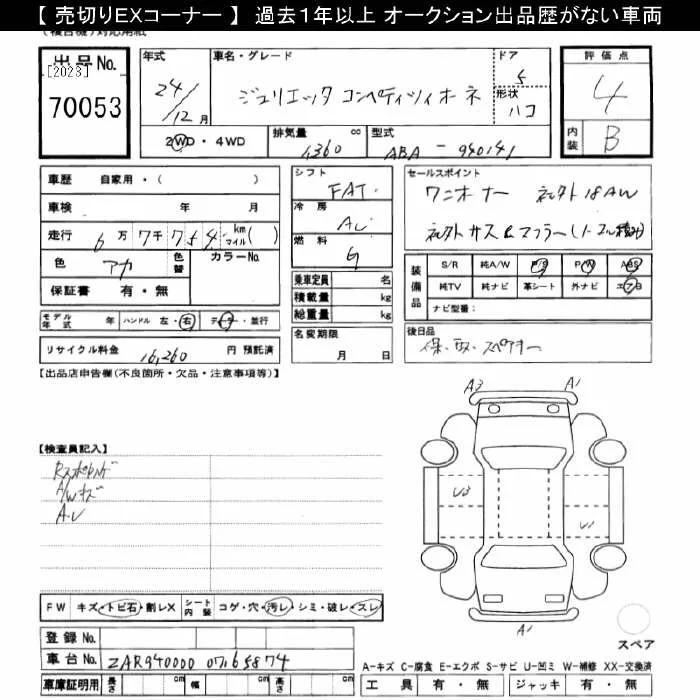 【 売切りEXコーナー 】 過去１年以上 オークション出品歴がない車両
出品No.
[2023]
70053
年式
24/12 月
車名・グレード
ジュリエッタ コンペティツィオーネ
ドア
5
形状
ハコ
評価点
4
内装
B
2WD・4WD
排気量 1360 cc
型式 ABA - 940141
車歴 自家用・( )
車検 年 月
走行 6万7千754 km マイル( )
色 アカ 色替 カラーNo.
保証書 有・無
シフト
FAT
冷房
AC
燃料
G
乗車定員 名
積載量 kg
総重量 kg
セールスポイント
ワンオーナー 社外18AW
社外サス&マフラー(ノーマル積み)
装備品
S/R 純A/W P/S P/W ABS
純TV 純ナビ 革シート 外ナビ エアB
ナビ型番：
モデル年式 年 ハンドル 左・右 ディーラー・並行
リサイクル料金 16,260 円 預託済
名変期限
月 日
後日品
保・取・スペアキー
【出品店申告欄(不良箇所・欠品・注意事項等)】
【検査員記入】
A/Wキズ
A3 A1
U3 U1
A1
スペア
FW キズ・トビ石・割レX シート内装 コゲ・穴・汚レ・シミ・破レ・スレ
登録No.
車台No. ZAR94000007165874
車庫証明用 長さ cm 幅 cm 高さ cm
A-キズ C-腐食 E-エクボ S-サビ U-凹ミ W-補修 XX-交換済
工具 有・無 ジャッキ 有・無